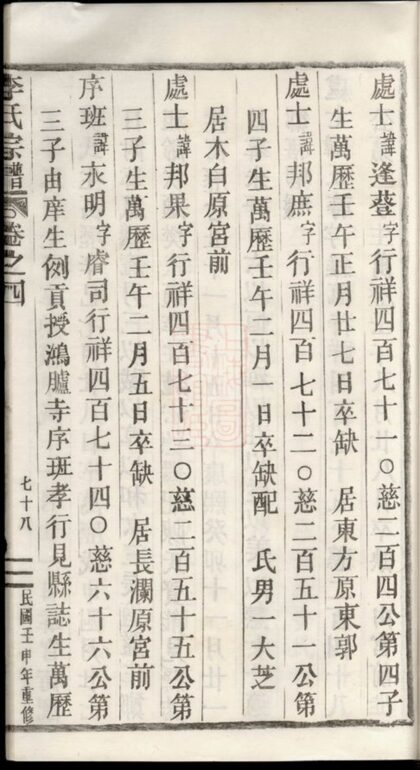 處士諱逢蓥字行祥四百七十一○慈二百四公第四子
生萬歷壬午正月廿七日卒缺 居東方原東郭
處士諱邦庶字行祥四百七十二○慈二百五十一公第
四子生萬歷壬午二月一日卒缺配 氏男一大芝
居木白原宮前
處士諱邦果字行祥四百七十三○慈二百五十五公第
三子生萬歷壬午二月五日卒缺 居長瀾原宮前
序班諱永明字睿司行祥四百七十四○慈六十六公第
三子由庠生例貢授鴻臚寺序班孝行見縣誌生萬歷
李氏宗譜 卷之四
七十八
民國壬申年重修